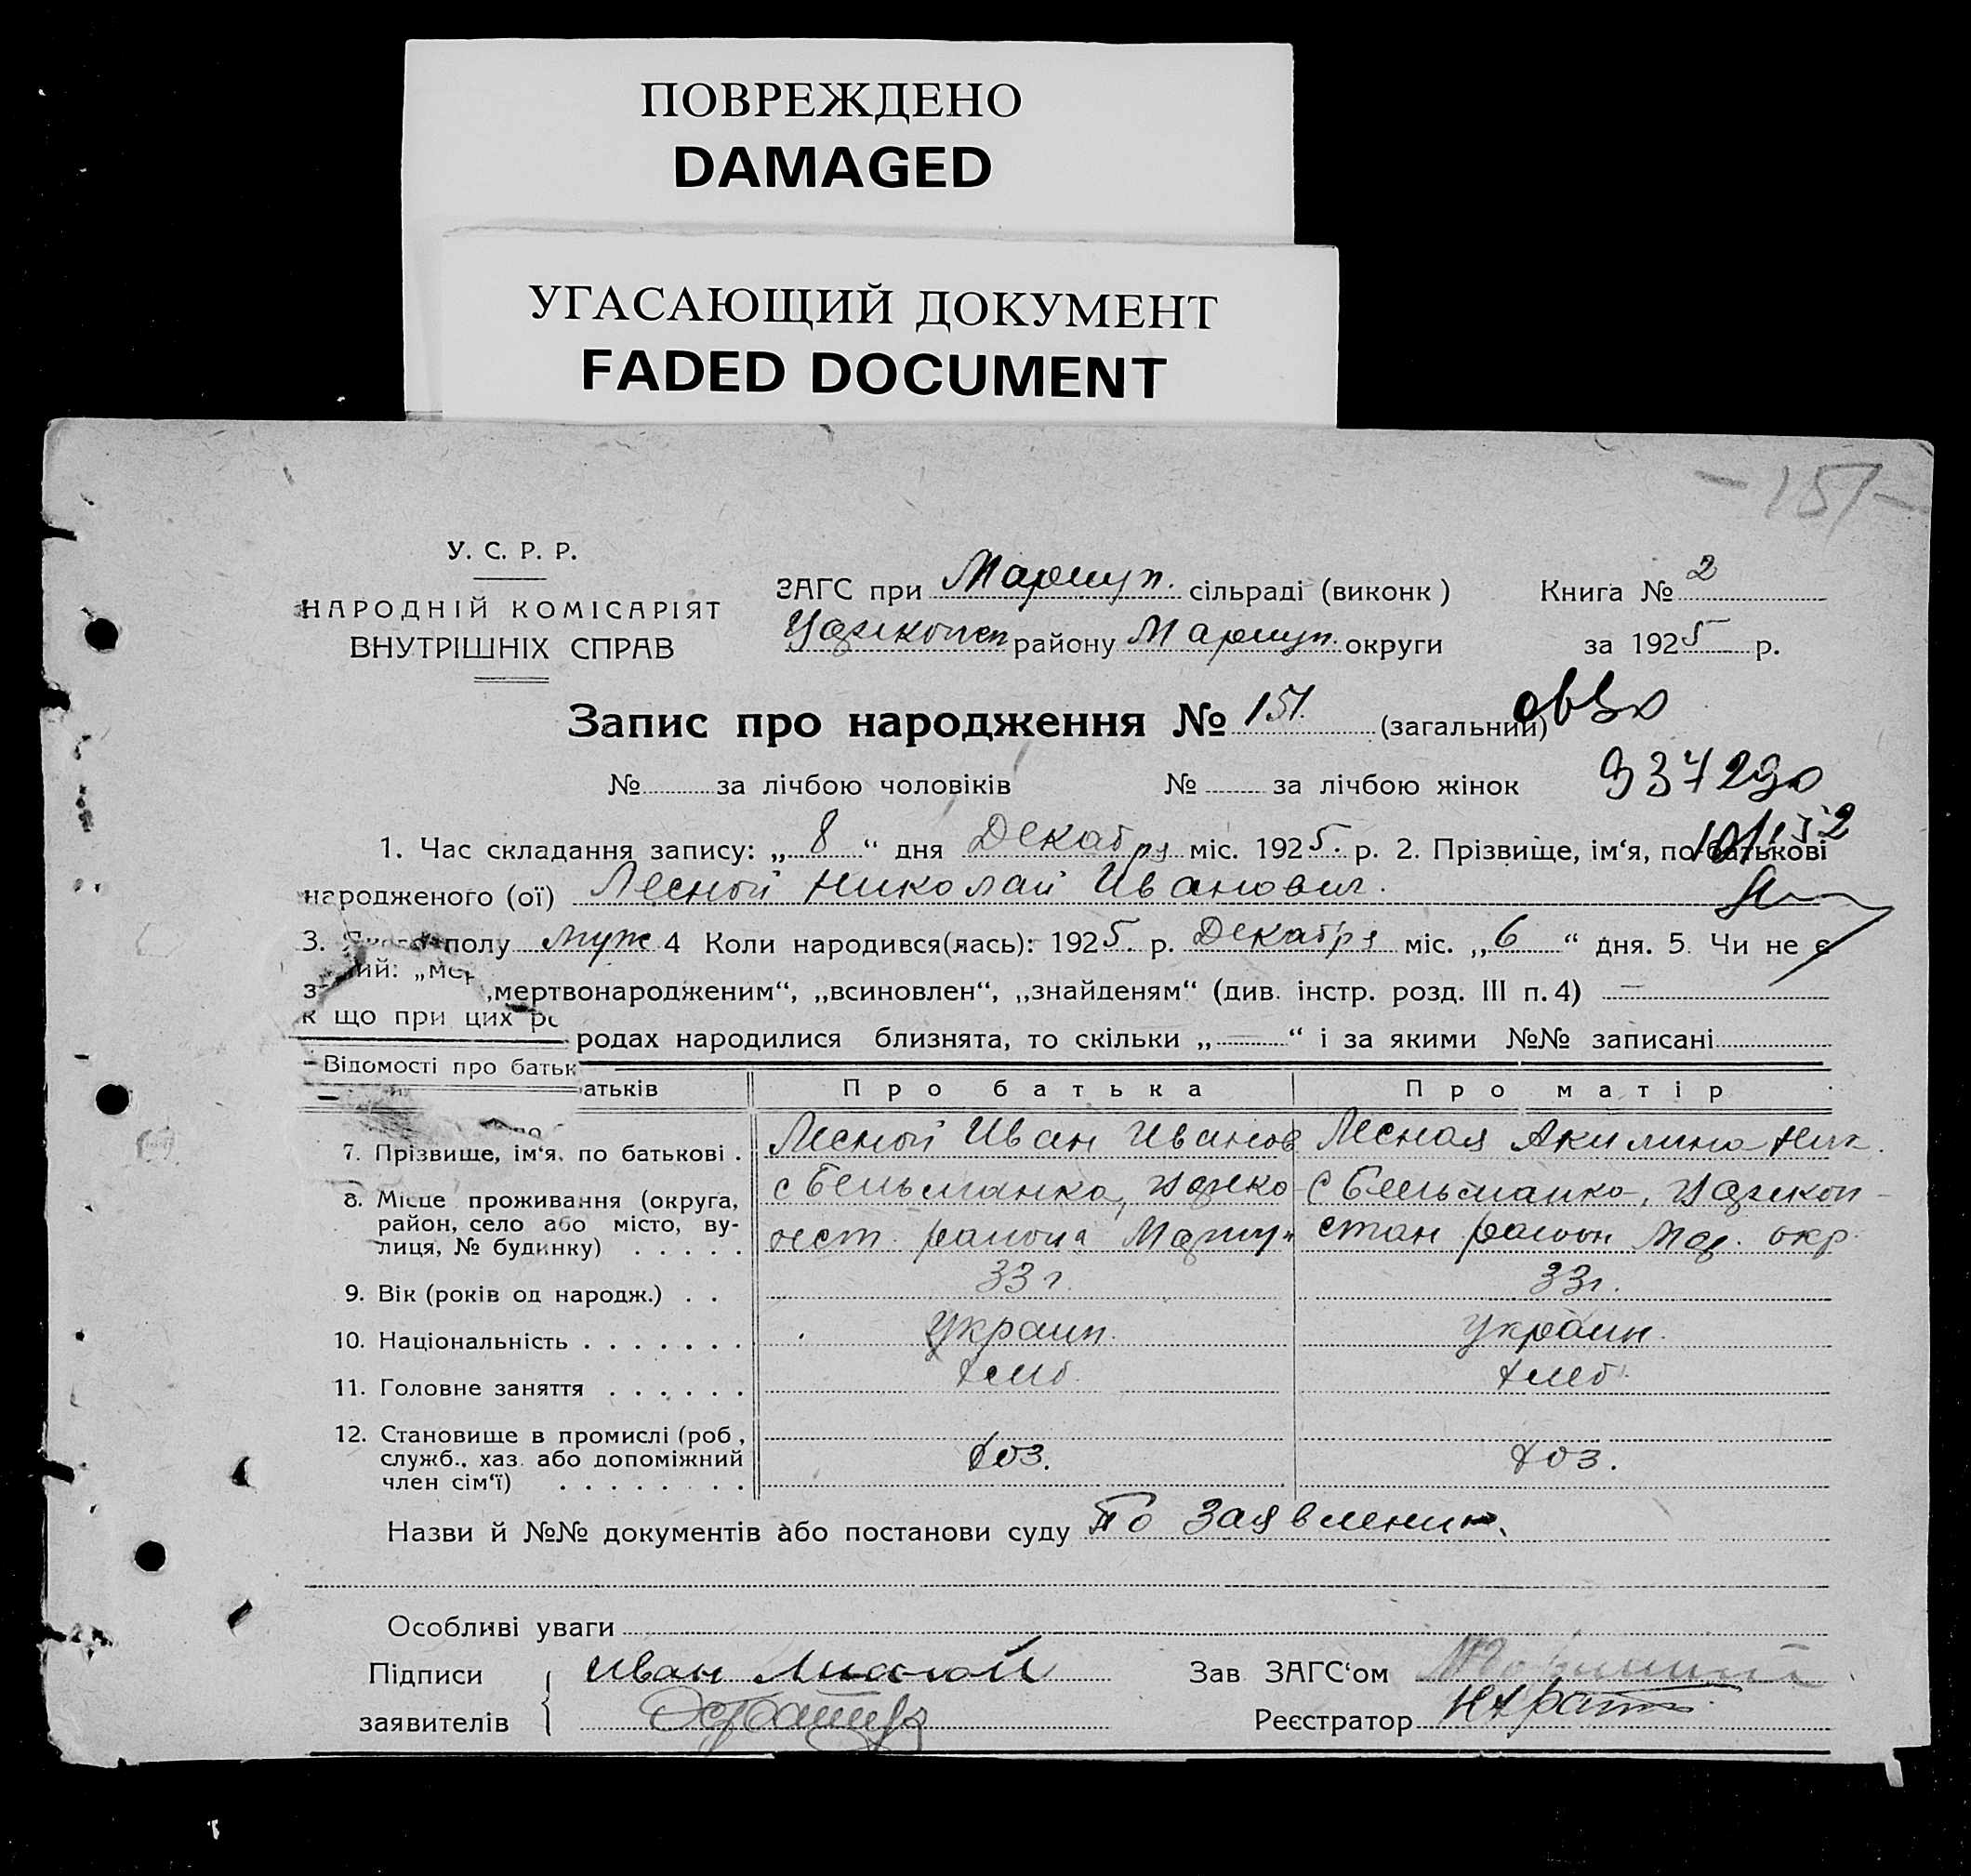 ПОВРЕЖДЕНО
DAMAGED
УГАСАЮЩИЙ ДОКУМЕНТ
FADED DOCUMENT
- 151 -
У. С. Р. Р.
НАРОДНІЙ КОМІСАРІЯТ
ВНУТРІШНІХ СПРАВ
ЗАГС при Мариуп. сільраді (виконк)
району Мариуп. округи
Книга № 2
за 1925 р.
Запис про народження № 151. (загальний)
№ за лічбою чоловіків № за лічбою жінок
937290
1. Час складання запису: „ 8 “ дня Декабря міс. 1925. р. 2. Прізвище, ім‘я, по-батькові
народженого (ої) Лесной Николай Иванович.
3. Якого полу муж 4 Коли народився(лась): 1925. р. Декабря міс. „ 6 “ дня. 5. Чи не є
„мертвонародженим“, „всиновлен“, „знайденям“ (див. інстр. розд. III п. 4) —
к що при цих ро
родах народилися близнята, то скільки „ — “ і за якими №№ записані
Відомості про батьк
атьків Про батька Про матір
7. Прізвище, ім‘я, по батькові . Лесной Иван Иванов Лесная Акилина Ник.
8. Місце проживання (округа, с Бельманка, Цареко С Бельманка, Царекон-
район, село або місто, ву-
лиця, № будинку) . . . . . района Мариуп стан район Мар. окр.
9. Вік (років од народж.) . . 33 г. 33 г.
10. Національність . . . . . . . Украин. Украин.
11. Головне заняття . . . . . . хлеб. хлеб.
12. Становище в промислі (роб,
служб., хаз. або допоміжний хоз. хоз.
член сім‘ї) . . . . . . . .
Назви й №№ документів або постанови суду По заявлению.
Особливі уваги
Підписи Иван Лисной Зав ЗАГС‘ом
заявителів Реєстратор